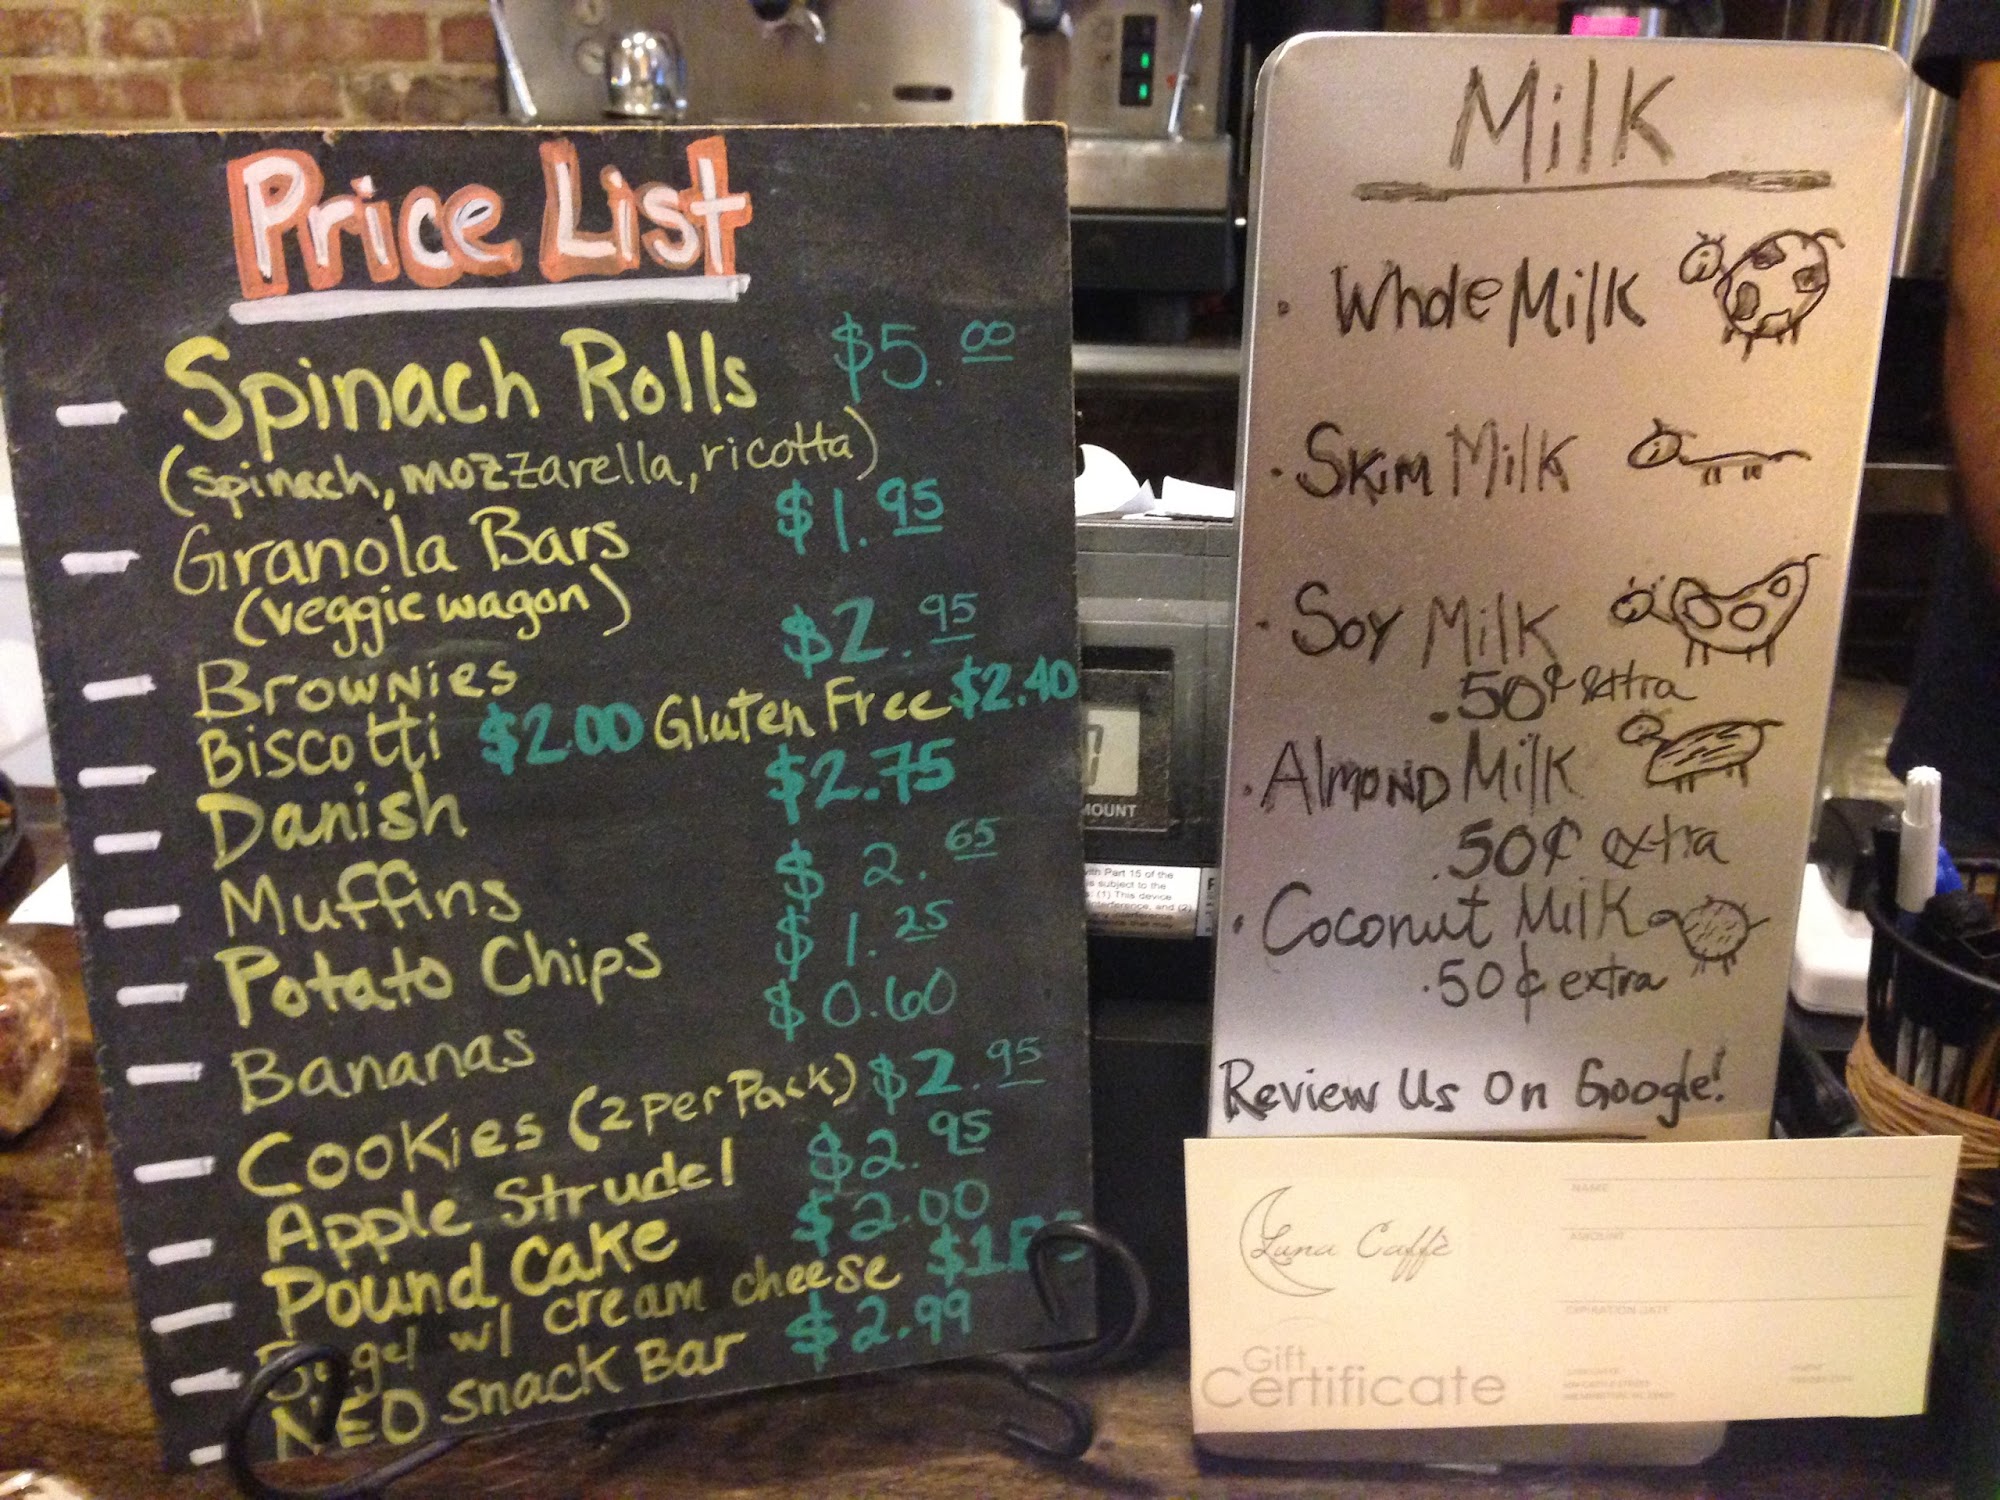 Price List
Spinach Rolls $5.00
(spinach, mozzarella, ricotta)
Granola Bars $1.95
(veggie wagon)
Brownies $2.95
Biscotti $2.00 Gluten Free $2.40
Danish $2.75
Muffins $2.65
Potato Chips $1.25
Bananas $0.60
Cookies (2 per Pack) $2.95
Apple Strudel $2.95
Pound Cake $2.00
Bagel w/ cream cheese
NEO Snack Bar $2.99
Milk
• Whole Milk
• Skim Milk
• Soy Milk
.50¢ extra
• Almond Milk
.50¢ extra
• Coconut Milk
.50¢ extra
Review Us On Google!
Luna Caffè
Gift
Certificate
NAME
AMOUNT
EXPIRATION DATE
MOUNT
with Part 15 of the
is subject to the
(1) This device
interference, and (2)